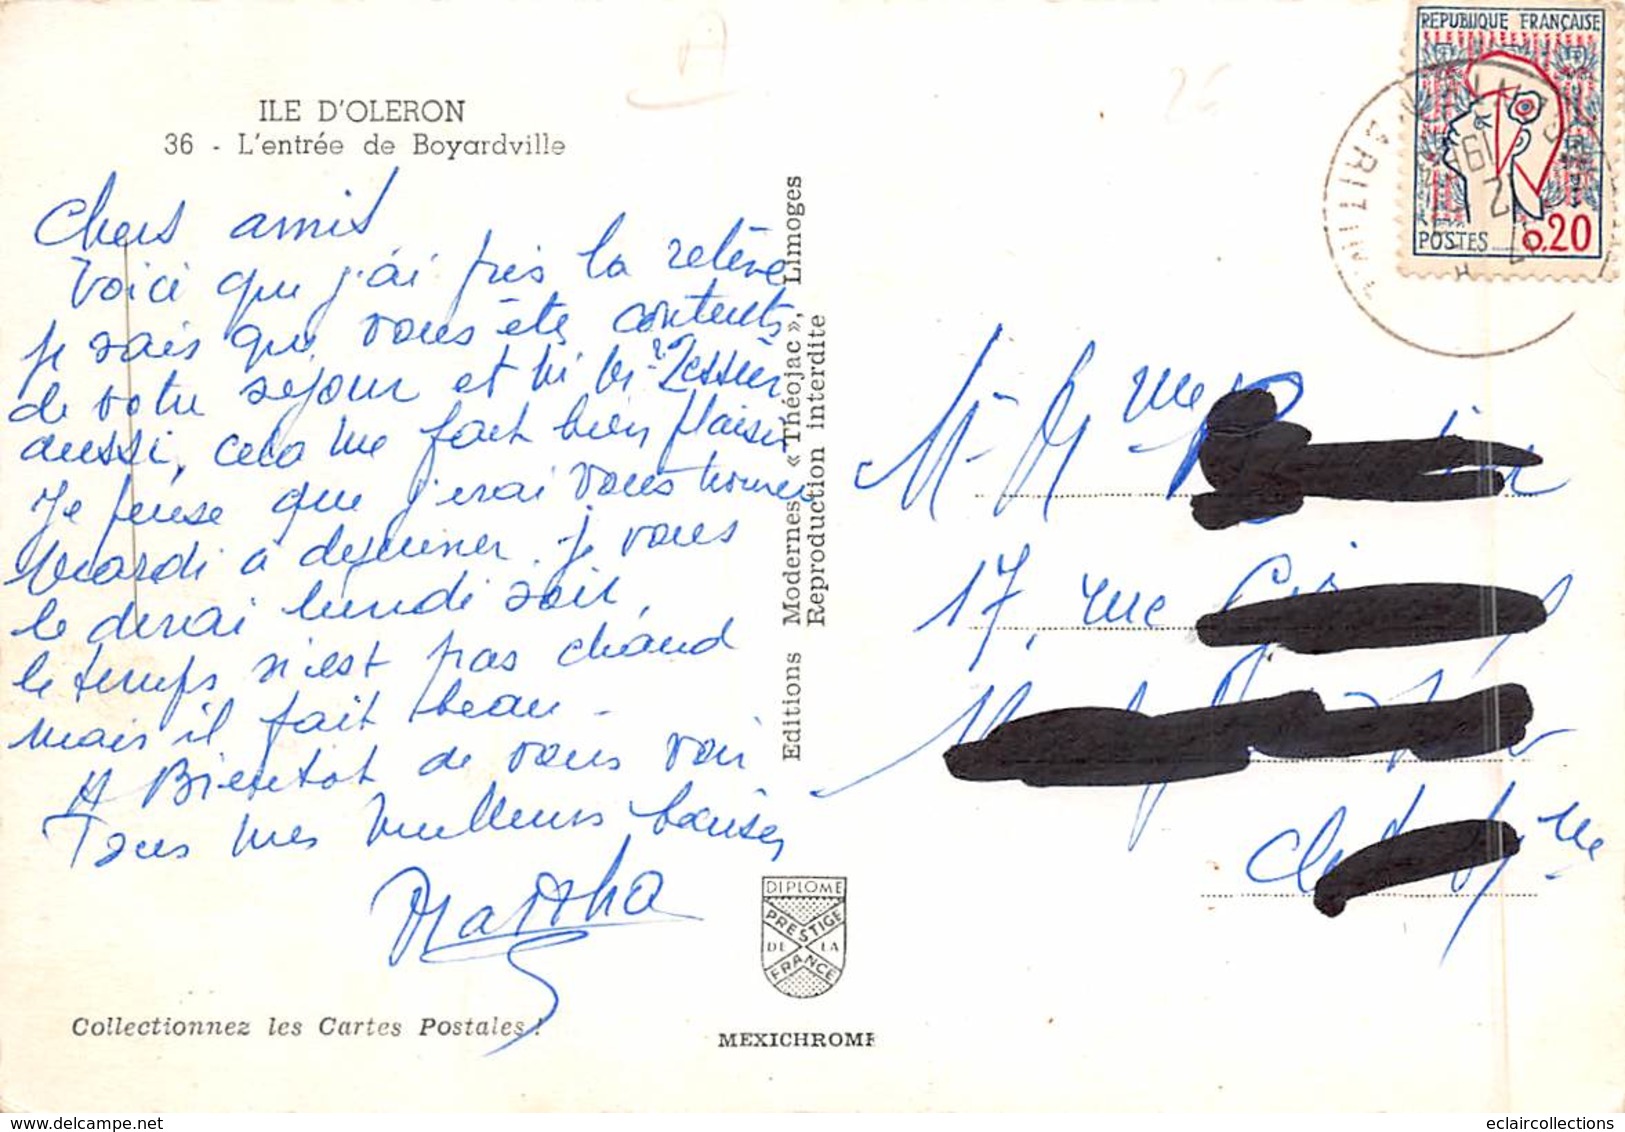 ILE D'OLERON
36 - L'entrée de Boyardville
Chers amis
Voici que j'ai pris la relève
je sais que vous êtes contents
de votre séjour et
aussi, cela me fait bien plaisir
Je pense que j'irai vous trouver
mardi à dejeuner. je vous
le dirai lundi soir,
le temps n'est pas chaud
mais il fait beau -
A Bientot de vous voir
Tous mes meilleurs baisers
Martha
Collectionnez les Cartes Postales !
Editions Modernes « Théojac », Limoges
Reproduction interdite
DIPLOME
PRESTIGE
DE LA
FRANCE
MEXICHROME
REPUBLIQUE FRANÇAISE
POSTES 0.20
ARITIM
M. Mme
17, rue
eclaircollections